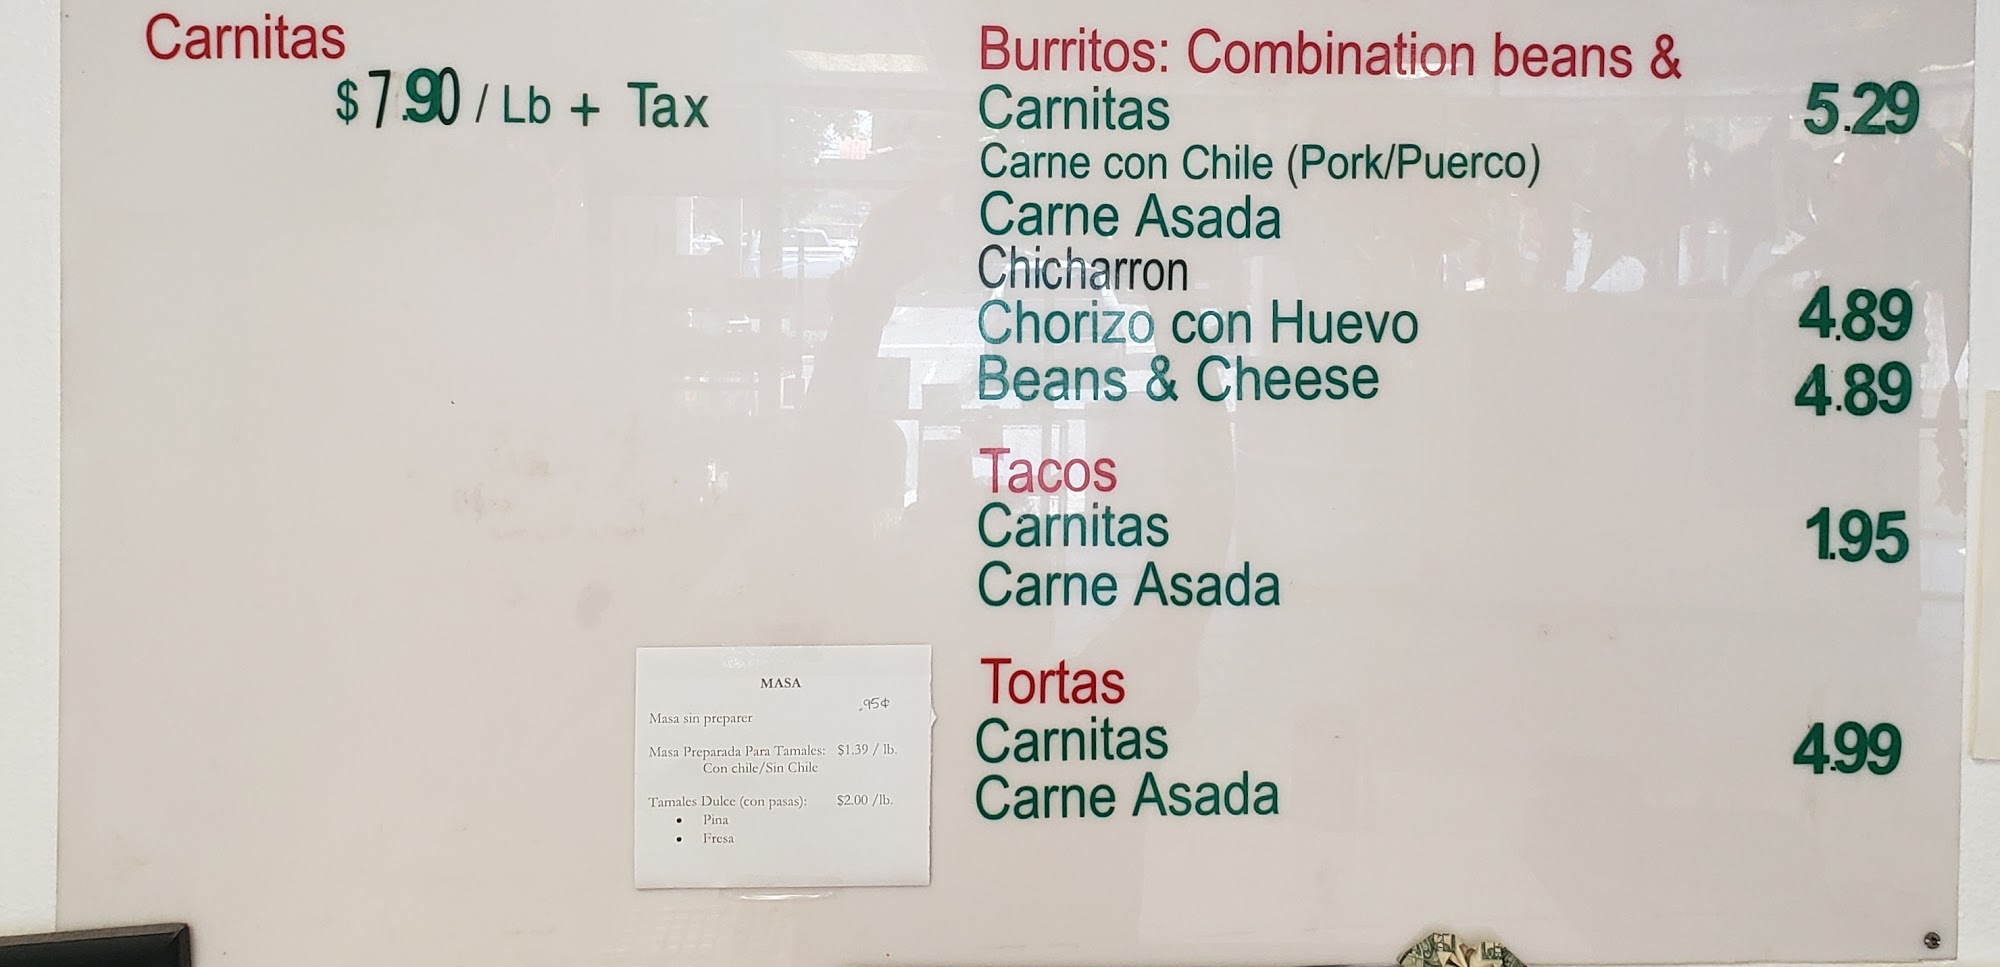 Carnitas
$7.90 / Lb + Tax
Burritos: Combination beans &
Carnitas 5.29
Carne con Chile (Pork/Puerco)
Carne Asada
Chicharron
Chorizo con Huevo 4.89
Beans & Cheese 4.89
Tacos
Carnitas 1.95
Carne Asada
Tortas
Carnitas 4.99
Carne Asada
MASA
Masa sin preparer .95¢
Masa Preparada Para Tamales: $1.39 / lb.
Con chile/Sin Chile
Tamales Dulce (con pasas): $2.00 /lb.
• Pina
• Fresa